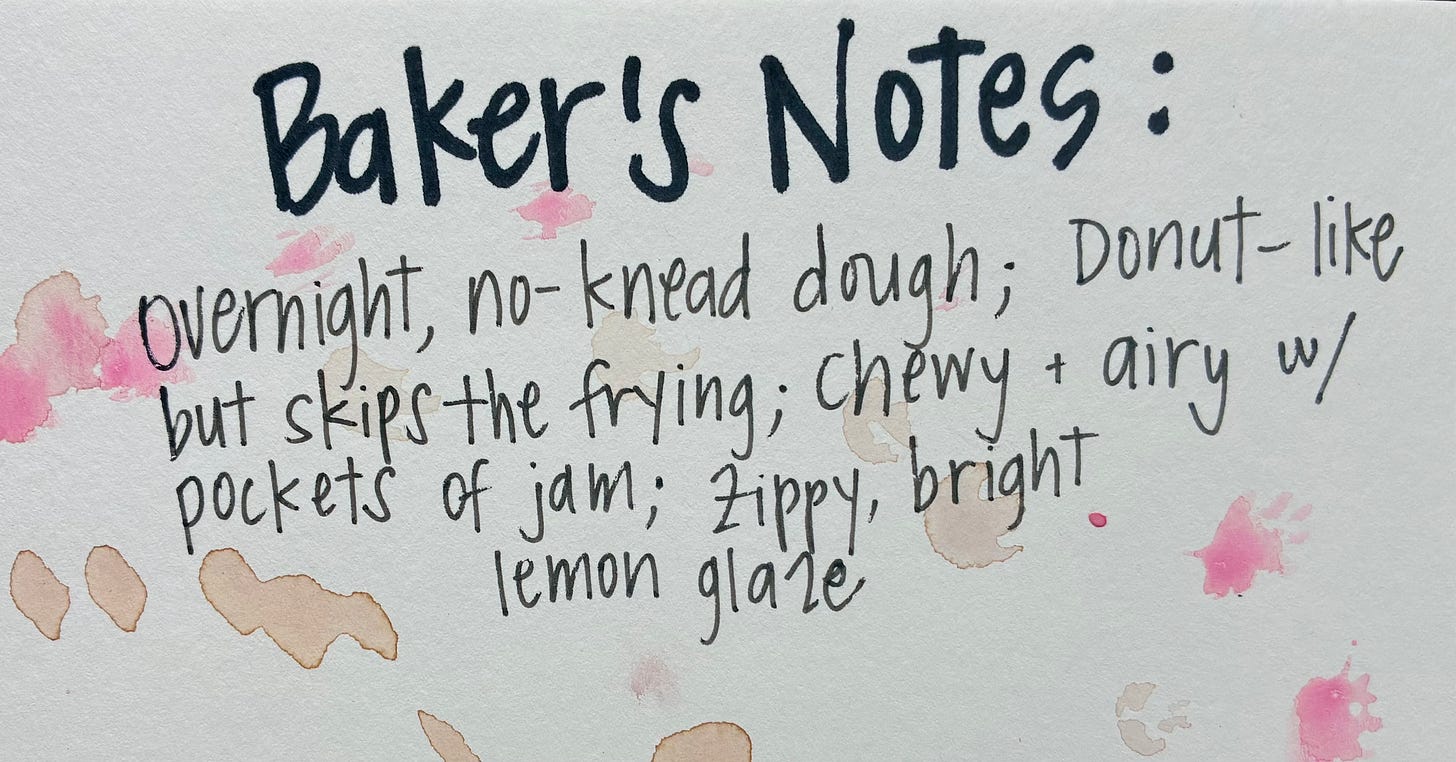 Baker's Notes:
Overnight, no-knead dough; Donut-like
but skips the frying; chewy + airy w/
pockets of jam; zippy, bright
lemon glaze